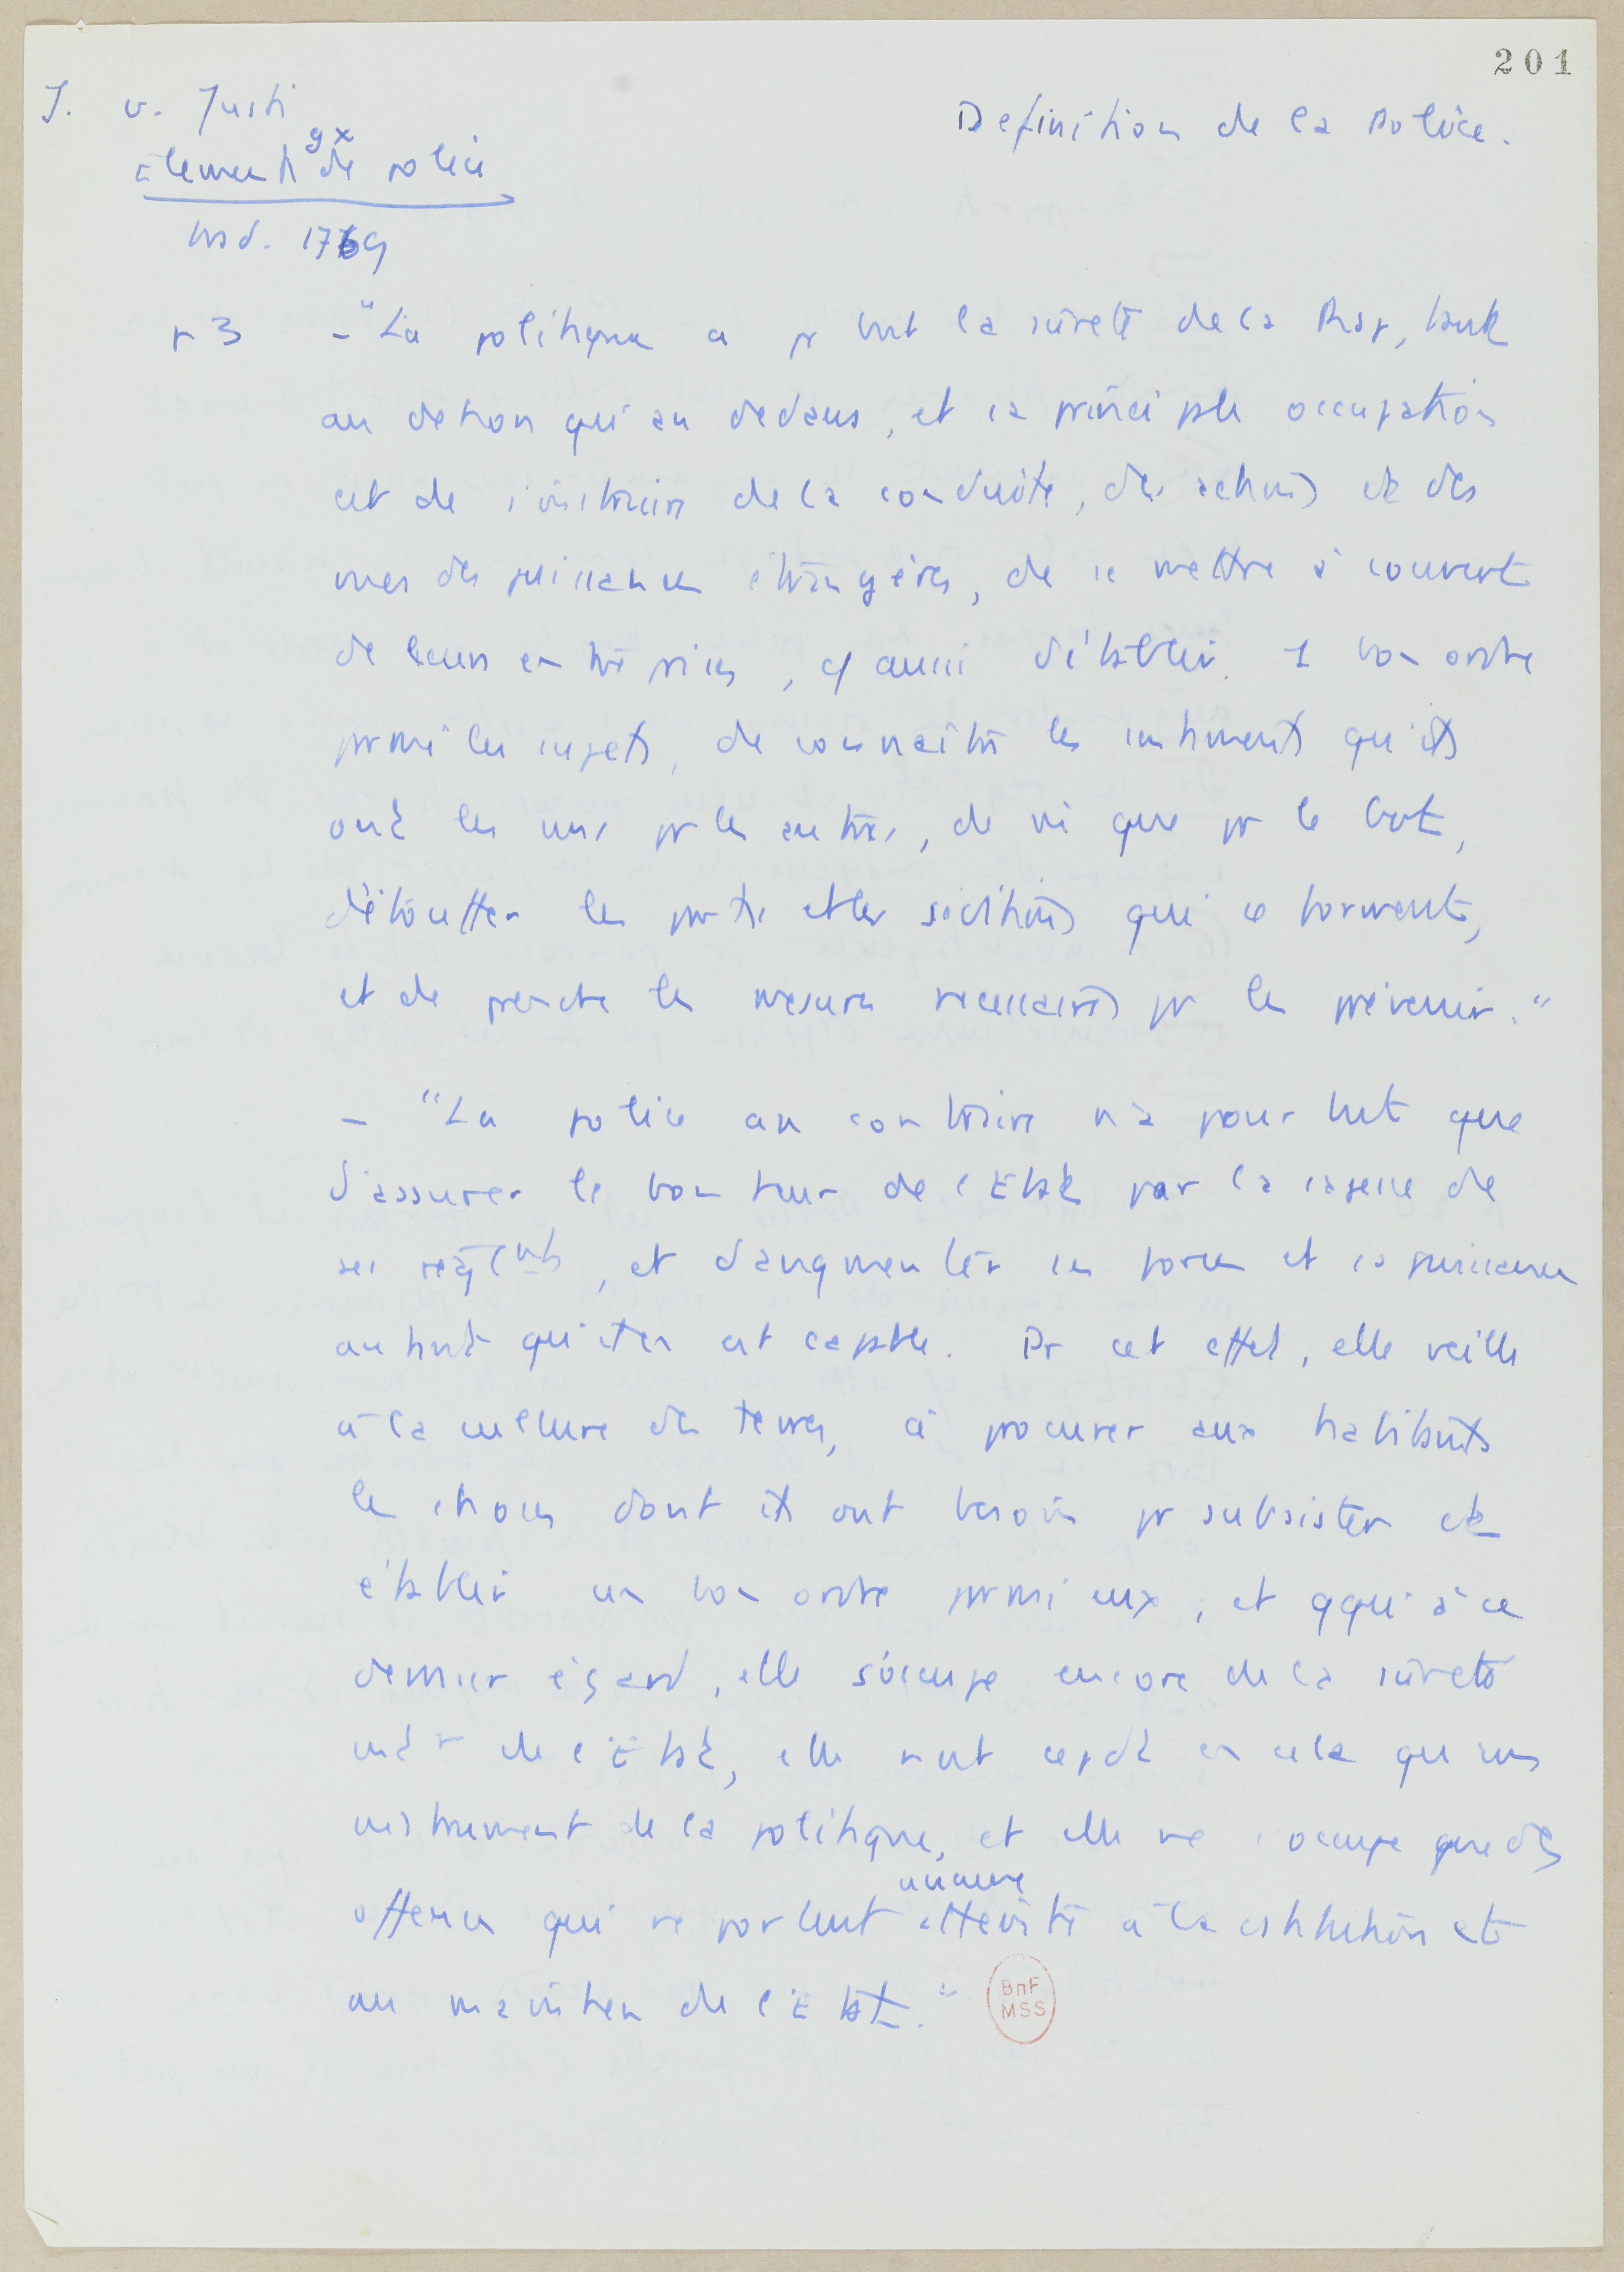 201
J. v. Justi
Definition de la Police.
Elements gx de police
trad. 1769
p 3 - "La politique a pr but la sûreté de la Rép, tant
au dehors qu'au dedans, et sa principale occupation
est de s'instruire de la conduite, des actions et des
vues des puissances étrangères, de se mettre à couvert
de leurs entreprises, aussi d'établir 1 bon ordre
parmi les sujets, de connaître les sentiments qu'ils
ont les uns pr les autres, de que pr le Gvt,
d'étouffer les partis et les séditions qui se forment,
et de prendre les mesures nécessaires pr les prévenir."
- "La police au contraire n'a pour but que
d'assurer le bonheur de l'Etat par la sagesse de
ses règlmts, et d'augmenter ses forces et sa puissance
autant qu'il en est capable. Pr cet effet, elle veille
à la culture des terres, à procurer aux habitants
les choses dont ils ont besoin pr subsister et
établir un bon ordre parmi eux, et qqu'à ce
dernier égard, elle s'occupe encore de la sûreté
intr de l'Etat, elle n'est cepdt en cela qu'un
instrument de la politique, et elle ne s'occupe que des
offenses qui ne portent aucune atteinte à la constitution et
au maintien de l'Etat."
BnF
MSS